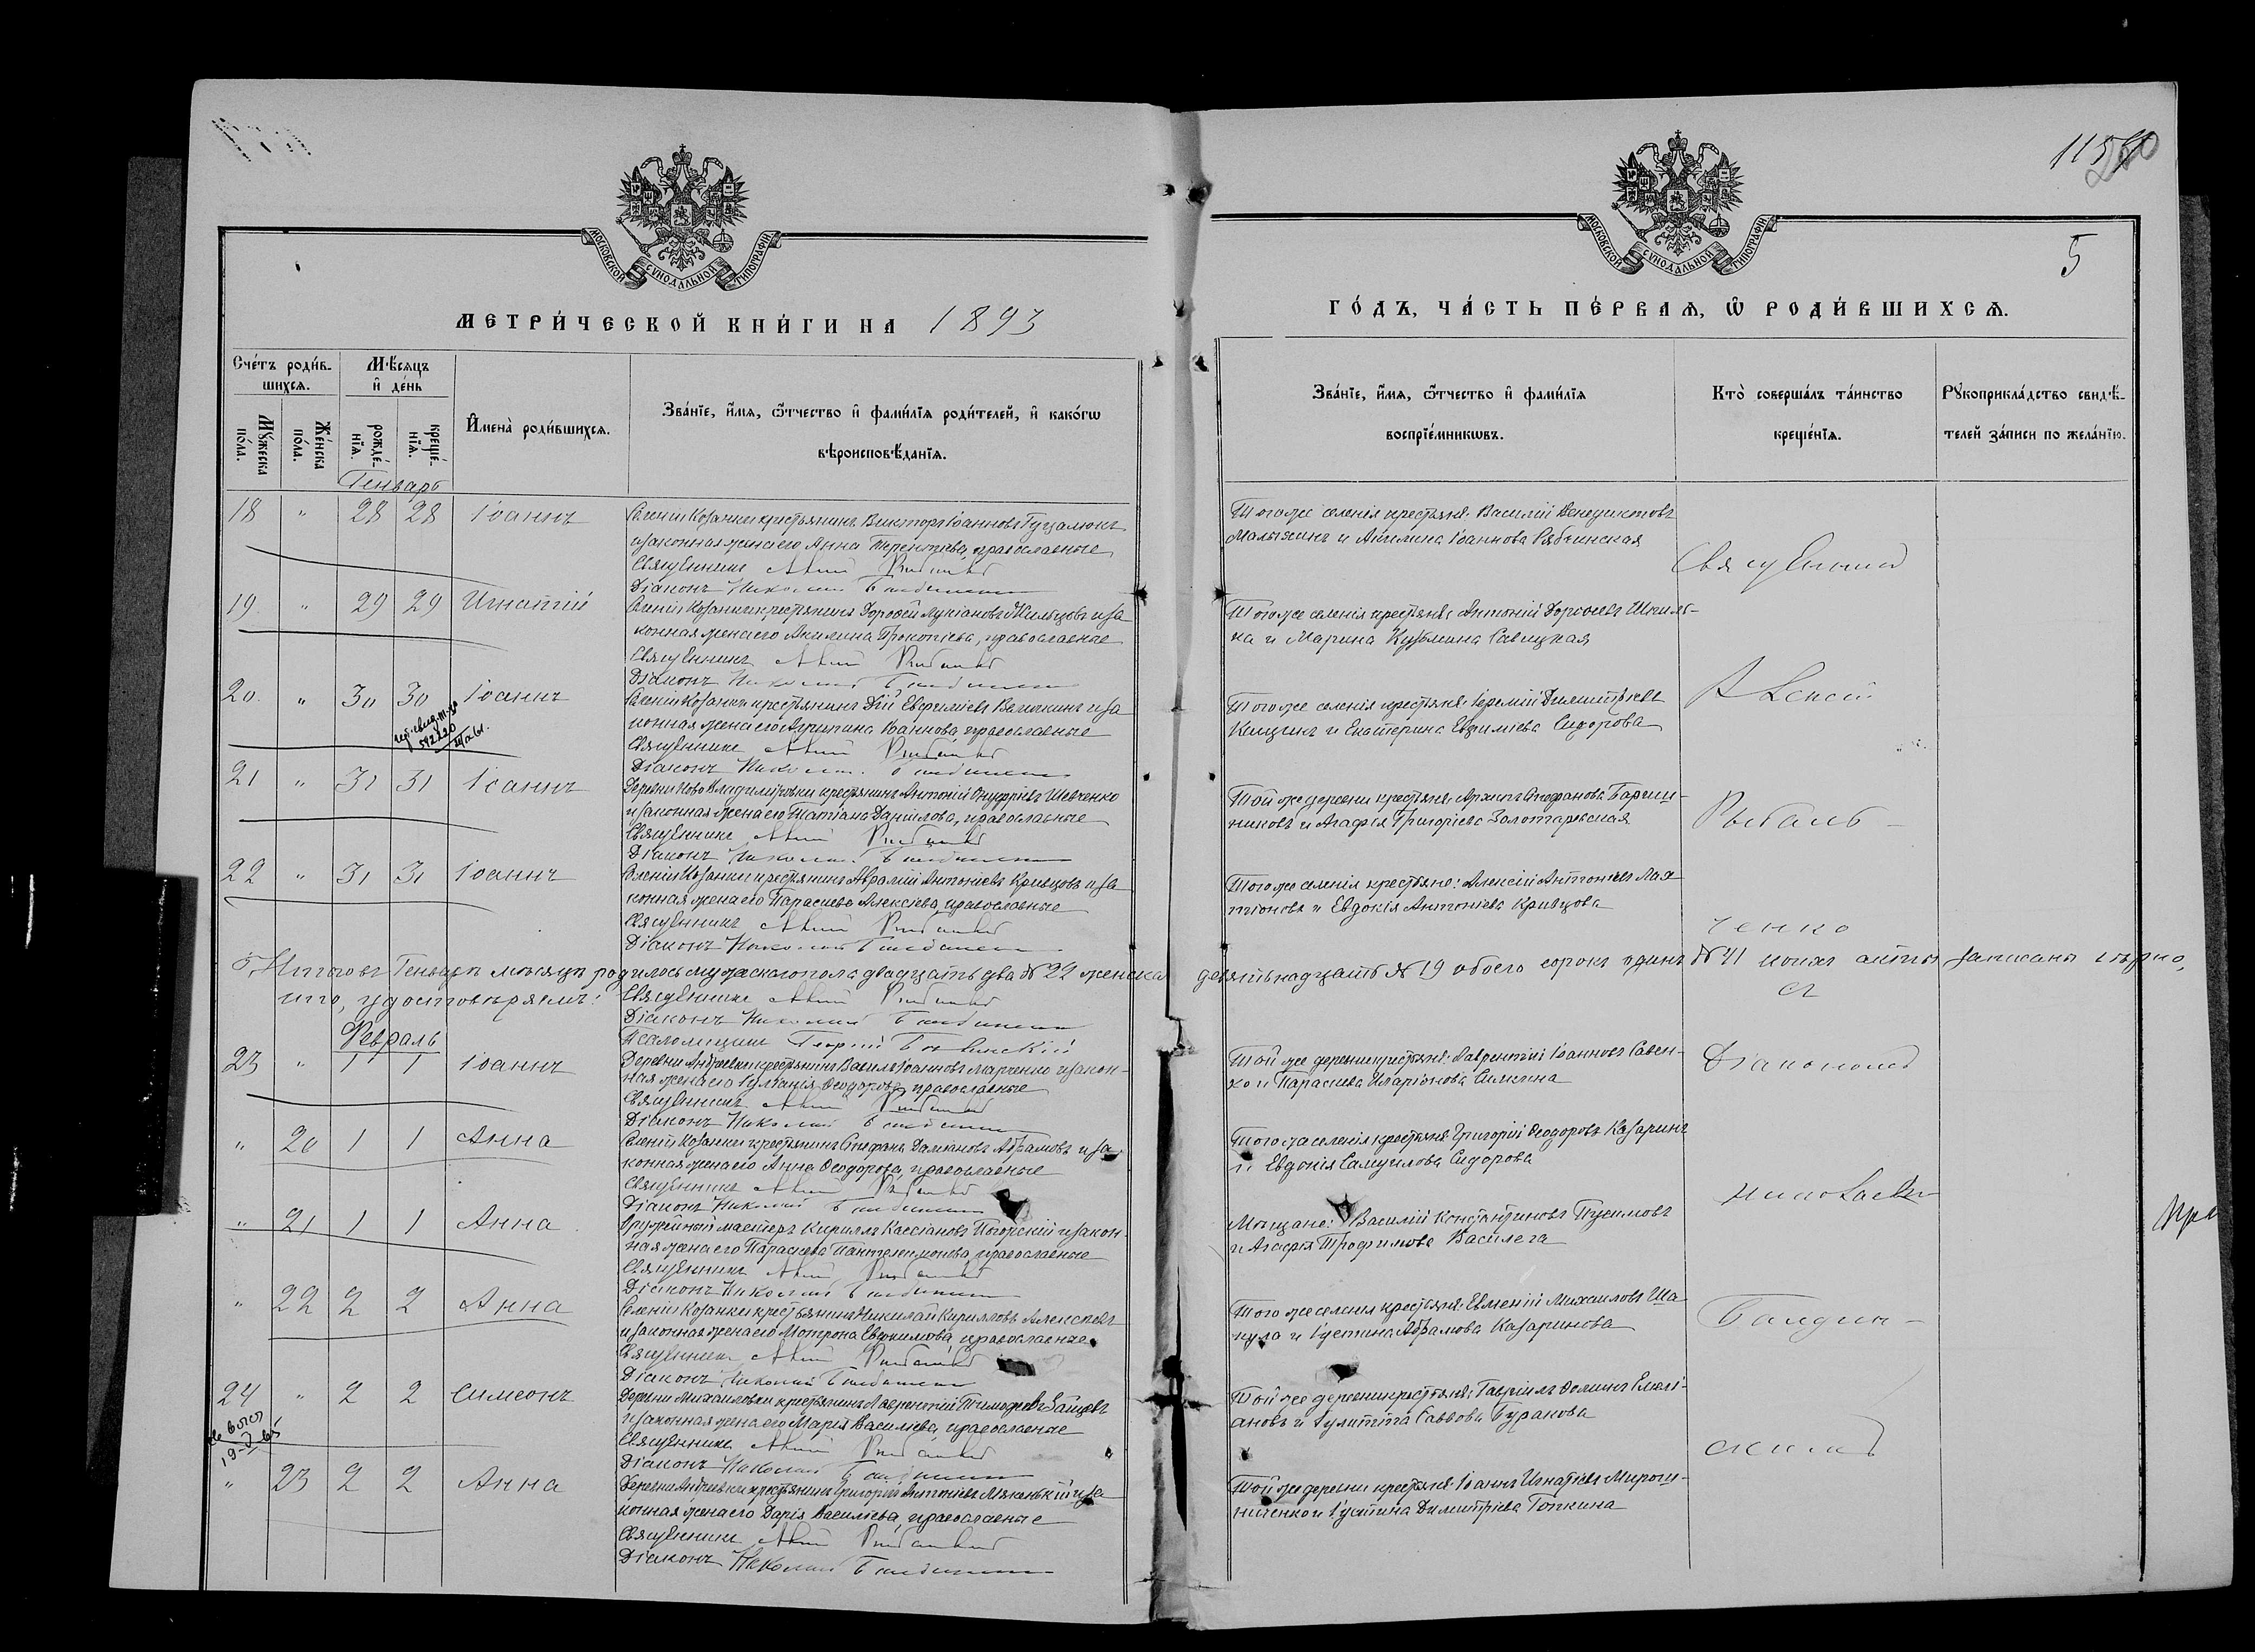 1154
МОСКОВСКОЙ СѴНОДАЛЬНОЙ ТИПОГРАФІИ
МОСКОВСКОЙ СѴНОДАЛЬНОЙ ТИПОГРАФІИ
5
МЕТРИ́ЧЕСКОЙ КНИ́ГИ НА 1893
ГО́ДЪ, ЧА́СТЬ ПЕ́РВАѦ, Ѡ҆ РОДИ́ВШИХСѦ.
Сче́тъ роди́в-
шихсѧ.
Мѣ́сѧцъ
и҆ де́нь
Мꙋ́жеска
по́ла.
Же́нска
по́ла.
рожде́-
нїѧ.
креще́-
нїѧ.
И҆мена̀ роди́вшихсѧ.
Зва́нїе, и҆́мѧ, ѻ҆́тчество и҆ фами́лїѧ роди́телей, и҆ како́гѡ
вѣроисповѣ́данїѧ.
Зва́нїе, и҆́мѧ, ѻ҆́тчество и҆ фами́лїѧ
воспрїе́мникѡвъ.
Кто̀ соверша́лъ та́инство
креще́нїѧ.
Рꙋкоприкла́дство свидѣ́-
телей за́писи по жела́нїю.
Генварь
18 " 28 28 Іоаннъ
Селенія Козанки крестьянинъ Викторъ Іоанновъ Гуцалюкъ
и законная жена его Анна Терентіева, православные
Священникъ
Діаконъ Николай
Того же селенія крестьяне: Василій Венедиктовъ
Малыхинъ и Акилина Іоаннова Рябчинская
Священникъ
19. " 29 29 Игнатій
Селенія Козанки крестьянинъ Дорофей Лукіановъ Жильцовъ и за
конная жена его Акилина Прокопіева, православные
Священникъ
Діаконъ Николай
Того же селенія крестьяне: Антоній Дорофеевъ Шкиль-
ка и Марина Кузьмина Савицкая
Алексій
20. " 30 30 Іоаннъ
Селенія Козанки крестьянинъ Дій Евфиміевъ Величкинъ и за
конная жена его Агрипина Іоаннова, православные
Священникъ
Діаконъ Николай
Того же селенія крестьяне: Іеремій Димитріевъ
Кищинъ и Екатерина Евфиміева Сидорова
21 " 31 31 Іоаннъ
Деревни Ново Владиміровки крестьянинъ Антоній Онуфріевъ Шевченко
и законная жена его Татіана Даніилова, православные
Священникъ
Діаконъ Николай
Той же деревни крестьяне: Архипъ Стефановъ Бариш-
никовъ и Агафія Григоріева Золотаревская
Рыбаль-
22 " 31 31 Іоаннъ
Селенія Козанки крестьянинъ Аврамій Антоніевъ Кривцовъ и за
конная жена его Параскева Алексіева, православные
Священникъ
Діаконъ Николай
Того же селенія крестьяне: Алексій Антоніевъ Лав
тіоновъ и Евдокія Антоніева Кривцова
ченко
Итого въ Генварѣ мѣсяцѣ родилось мужскаго пола двадцать два № 22 женска девятьнадцать № 19 обоего сорокъ одинъ № 41 коихъ акты записаны вѣрно,
что, удостовѣряемъ:
Священникъ
Діаконъ Николай
Псаломщикъ Георгій
съ
Февраль
23 " 1 1 Іоаннъ
Деревни Андреевки крестьянинъ Василъ Іоанновъ Марченко и закон-
ная жена его Гликерія Ѳеодорова, православные
Священникъ
Діаконъ Николай
Той же деревни крестьяне: Лаврентій Іоанновъ Савен-
ко и Параскева Иларіонова Симкина
Діакономъ
" 20 1 1 Анна
Селенія Козанки крестьянинъ Стефанъ Даміановъ Абрамовъ и за
конная жена его Анна Ѳеодорова, православные
Священникъ
Діаконъ Николай
Того же селенія крестьяне: Григорій Ѳеодоровъ Казаринъ
и Евдокія Самуилова Сидорова
Николаемъ
" 21 1 1 Анна
Оружейный мастеръ Кириллъ Кассіановъ Погорскій и закон-
ная жена его Параскева Пантелеимонова, православные
Священникъ
Діаконъ Николай
Мѣщане: Василій Константиновъ Пусимовъ
и Агафія Трофимова Василега
" 22 2 2 Анна
Селенія Козанки крестьянинъ Николай Кирилловъ Алексѣевъ
и законная жена его Матрона Евфимова, православные
Священникъ
Діаконъ Николай
Того же селенія крестьяне: Евменій Михаиловъ Ша-
кула и Іустина Абрамова Казаринова
Балдин-
24 " 2 2 Симеонъ
Деревни Михаиловки крестьянинъ Лаврентій Тимофеевъ Зайцевъ
и законная жена его Марія Василіева, православные
Священникъ
Діаконъ Николай
Той же деревни крестьяне: Гавріилъ Ѳоминъ Емелі-
ановъ и Іулитта Саввова Буракова
скимъ
" 23 2 2 Анна
Деревни Андреевки крестьянинъ Григорій Антоніевъ Мякенькій и за
конная жена его Дарія Василіева, православные
Священникъ
Діаконъ Николай
Той же деревни крестьяне: Іоаннъ Игнатіевъ Мирош-
ниченко и Іустина Димитріева Топкина